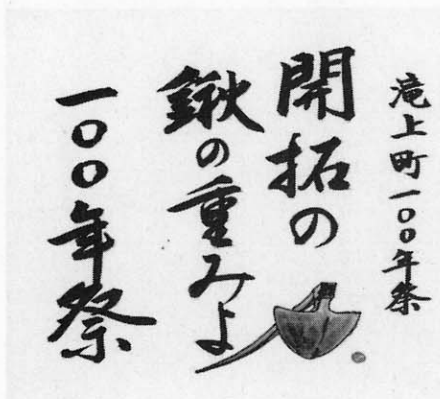 滝上町一〇〇年祭
開拓の
鍬の重みよ
一〇〇年祭